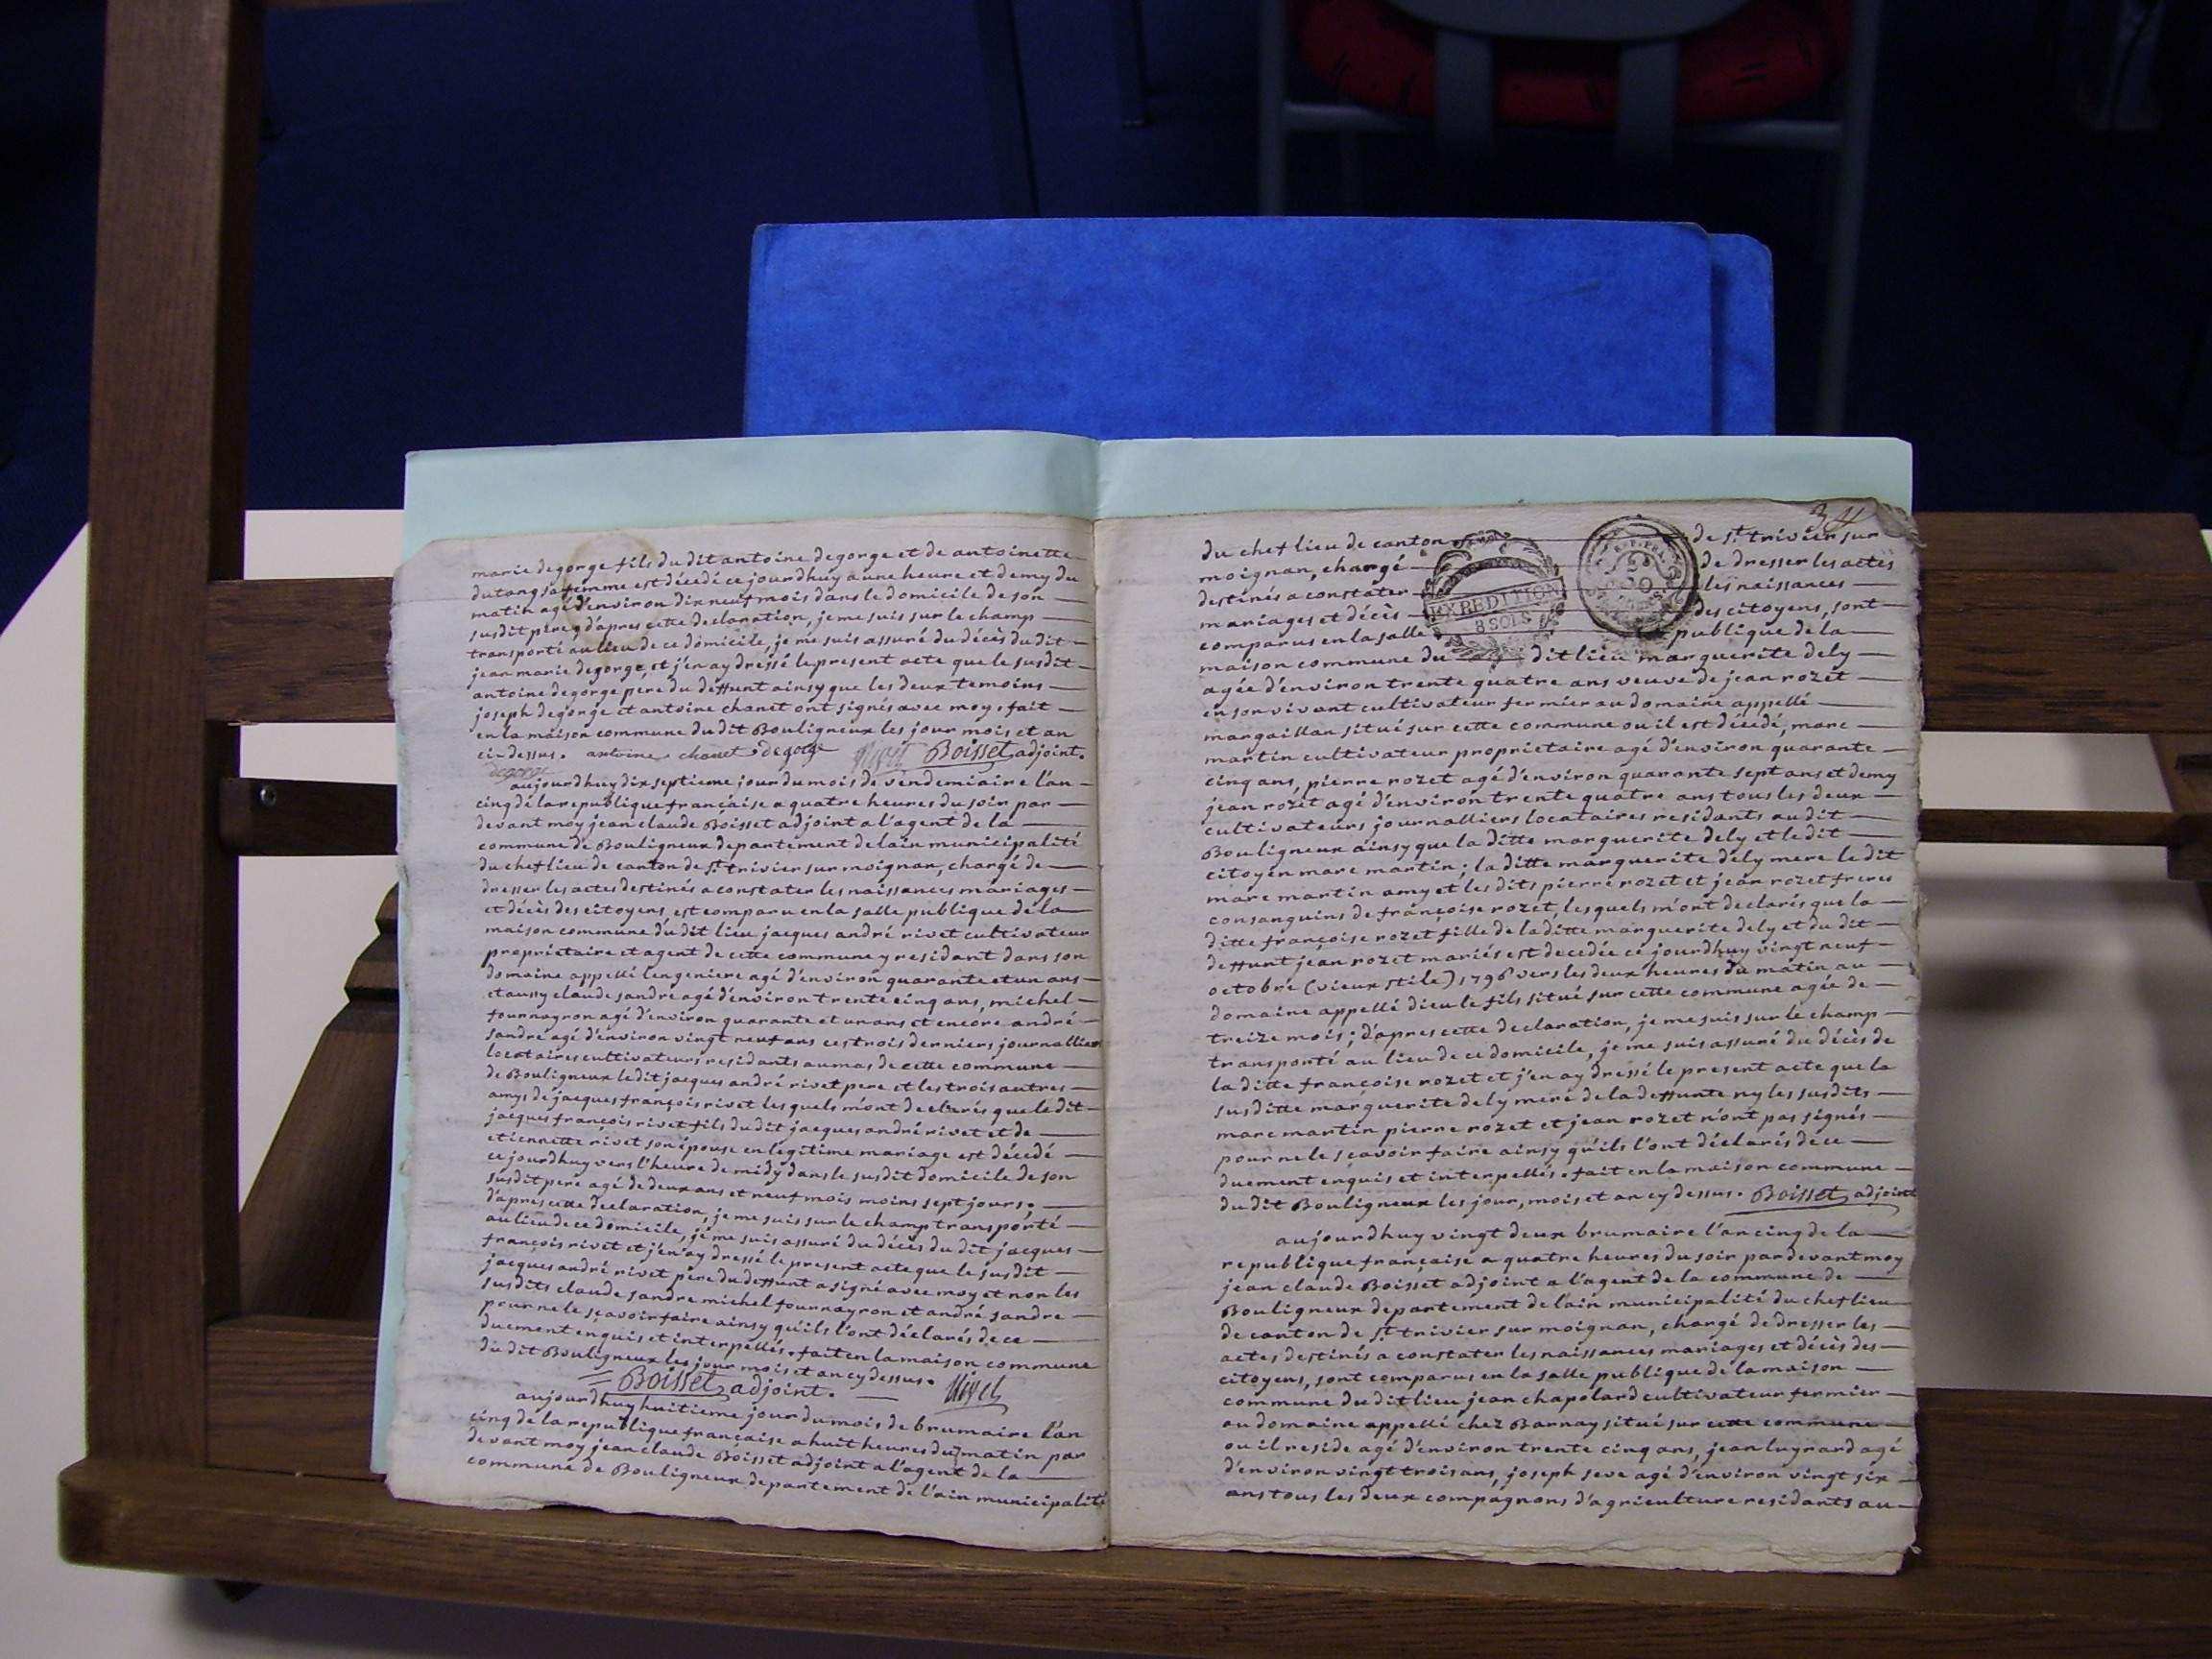 marie degorge fils du dit antoine degorge et de antoinette
dutang sa femme est décédé ce jourdhuy a une heure et demy du
matin agé d'environ dix neuf mois dans le domicile de son
susdit pere, d'apres cette declaration, je me suis sur le champ
transporté au lieu de ce domicile, je me suis assuré du décès du dit
jean marie degorge, et j'en ay dressé le present acte que le susdit
antoine degorge pere du deffunt ainsy que les deux temoins
joseph degorge et antoine chanet ont signés avec moy. fait
en la maison commune du dit Bouligneux les jour mois et an
ci dessus. antoine chanet degorge Boisset adjoint.
degorge
aujourdhuy dix septieme jour du mois de vendemiaire l'an
cinq de la republique française a quatre heures du soir par
devant moy jean claude Boisset adjoint a l'agent de la
commune de Bouligneux departement de lain municipalité
du chef lieu de canton de st. trivier sur moignan, chargé de
dresser les actes destinés a constater les naissances mariages
et décès des citoyens, est comparu en la salle publique de la
maison commune du dit lieu jacques andré rivet cultivateur
propriétaire et agent de cette commune y residant dans son
domaine appellé lengeniere agé d'environ quarante et un ans
et aussy claude sandre agé d'environ trente cinq ans, michel
fournayron agé d'environ quarante et un ans et encore andré
sandre agé d'environ vingt neuf ans ces trois derniers journalliers
locataires cultivateurs residants au mas de cette commune
de Bouligneux le dit jacques andré rivet pere et les trois autres
amys de jacques françois rivet les quels m'ont declarés que le dit
jacques françois rivet fils du dit jacques andré rivet et de
etiennette rivet son épouse en legitime mariage est décédé
ce jourdhuy vers l'heure de midy dans le susdit domicile de son
susdit pere agé de deux ans et neuf mois moins sept jours.
d'apres cette declaration, je me suis sur le champ transporté
au lieu de ce domicile, je me suis assuré du décès du dit jacques
françois rivet et j'en ay dressé le present acte que le susdit
jacques andré rivet pere du deffunt a signé avec moy et non les
susdits claude sandre michel fournayron et andré sandre
pour ne le sçavoir faire ainsy qu'ils l'ont déclarés de ce
duement enquis et interpellés. fait en la maison commune
du dit Bouligneux les jour mois et an cy dessus.
Boisset adjoint. Rivet
aujourdhuy huitieme jour du mois de brumaire l'an
cinq de la republique française a huit heures du matin par
devant moy jean claude Boisset adjoint a l'agent de la
commune de Bouligneux departement de l'ain municipalité
34
du chef lieu de canton de st. trivier sur
moignan, chargé de dresser les actes
destinés a constater les naissances
mariages et décès des citoyens, sont
comparus en la salle publique de la
EXPEDITION
8 SOLS
maison commune du dit lieu marguerite dely
agée d'environ trente quatre ans veuve de jean rozet
en son vivant cultivateur fermier au domaine appellé
margaillan situé sur cette commune ou il est décédé, marc
martin cultivateur propriétaire agé d'environ quarante
cinq ans, pierre rozet agé d'environ quarante sept ans et demy
jean rozet agé d'environ trente quatre ans tous les deux
cultivateurs journalliers locataires residants au dit
Bouligneux ainsy que la ditte marguerite dely et le dit
citoyen marc martin; la ditte marguerite dely mere le dit
marc martin amy et les dits pierre rozet et jean rozet freres
consanguins de françoise rozet, les quels m'ont declarés que la
ditte françoise rozet fille de la ditte marguerite dely et du dit
deffunt jean rozet mariés est decedée ce jourdhuy vingt neuf
octobre (vieux stile) 1796 vers les deux heures du matin au
domaine appellé dieu le fils situé sur cette commune agée de
treize mois; d'apres cette declaration, je me suis sur le champ
transporté au lieu de ce domicile, je me suis assuré du décès de
la ditte françoise rozet et j'en ay dressé le present acte que la
susditte marguerite dely mere de la deffunte ny les susdits
marc martin pierre rozet et jean rozet n'ont pas signés
pour ne le sçavoir faire ainsy qu'ils l'ont déclarés de ce
duement enquis et interpellés. fait en la maison commune
du dit Bouligneux les jour, mois et an cy dessus. Boisset adjoint
aujourdhuy vingt deux brumaire l'an cinq de la
republique française a quatre heures du soir par devant moy
jean claude Boisset adjoint a l'agent de la commune de
Bouligneux departement de l'ain municipalité du chef lieu
de canton de st. trivier sur moignan, chargé de dresser les
actes destinés a constater les naissances mariages et décès des
citoyens, sont comparus en la salle publique de la maison
commune du dit lieu jean chapolard cultivateur fermier
au domaine appellé chez Barnay situé sur cette commune
ou il reside agé d'environ trente cinq ans, jean lugrard agé
d'environ vingt trois ans, joseph seve agé d'environ vingt six
ans tous les deux compagnons d'agriculture residants au